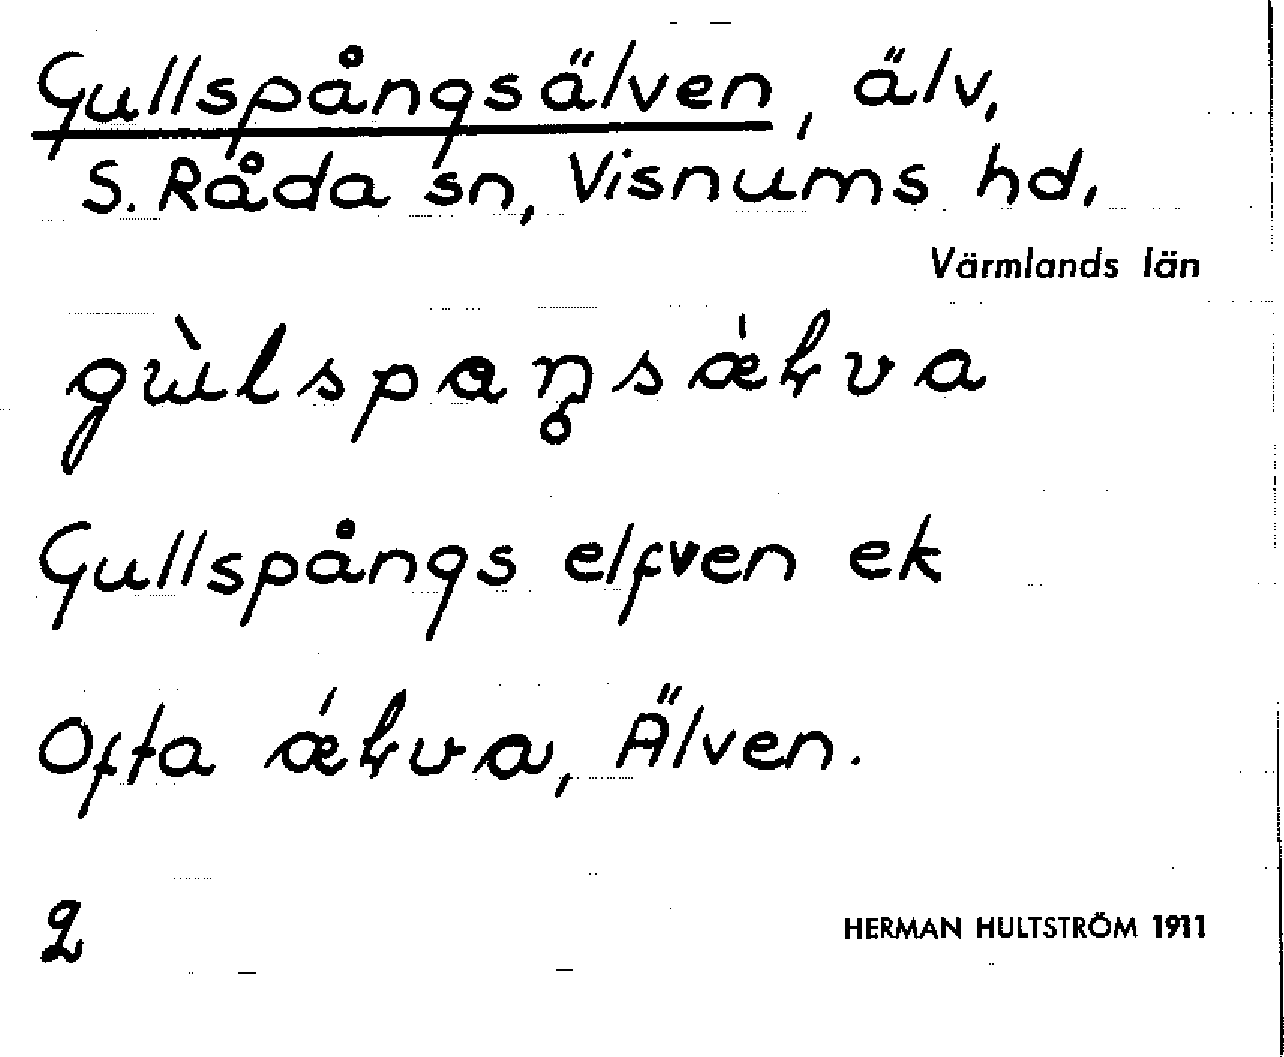 Gullspångsälven, älv,
S. Råda sn, Visnums hd,
Värmlands län
Gullspångs elfven ek
Ofta Älven.
2
HERMAN HULTSTRÖM 1911